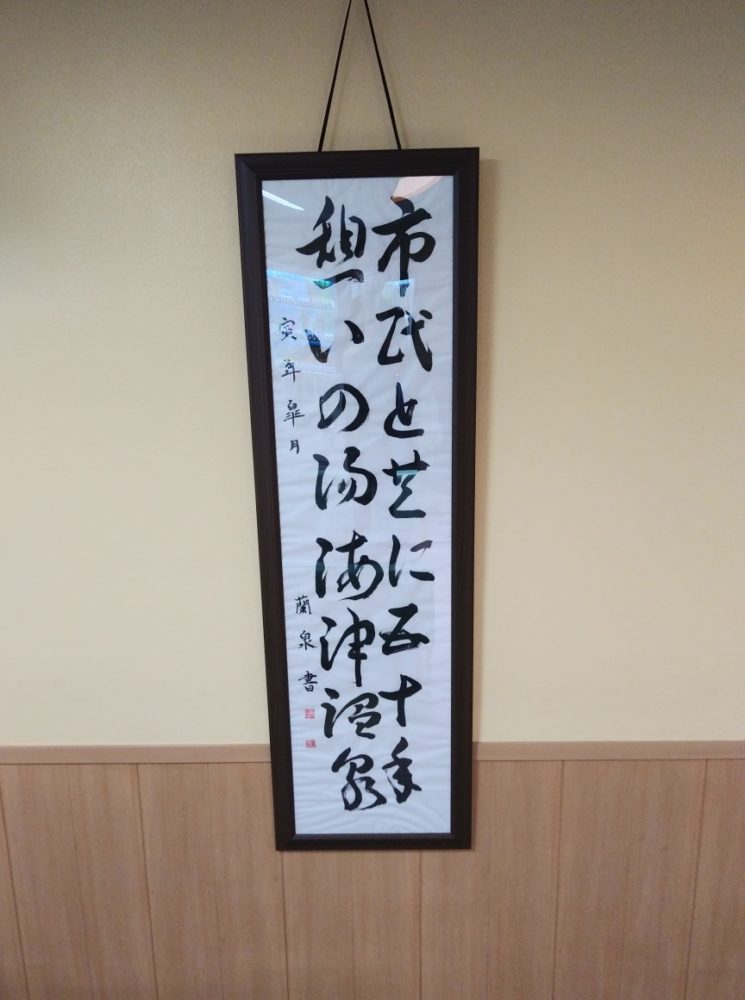 市民と共に五十年
憩いの湯海津温泉
寅年皐月
蘭泉書